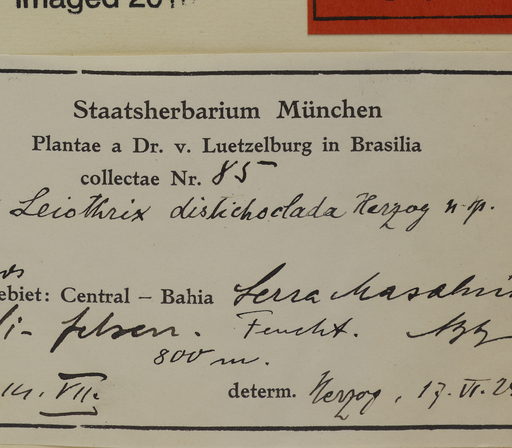 Imaged 201
Staatsherbarium München
Plantae a Dr. v. Luetzelburg in Brasilia
collectae Nr. 85
Leiothrix distichoclada Herzog n. sp.
ebiet: Central - Bahia Serra
felsen. Feucht.
800 m.
VII. determ. Herzog, 17. VI. 2